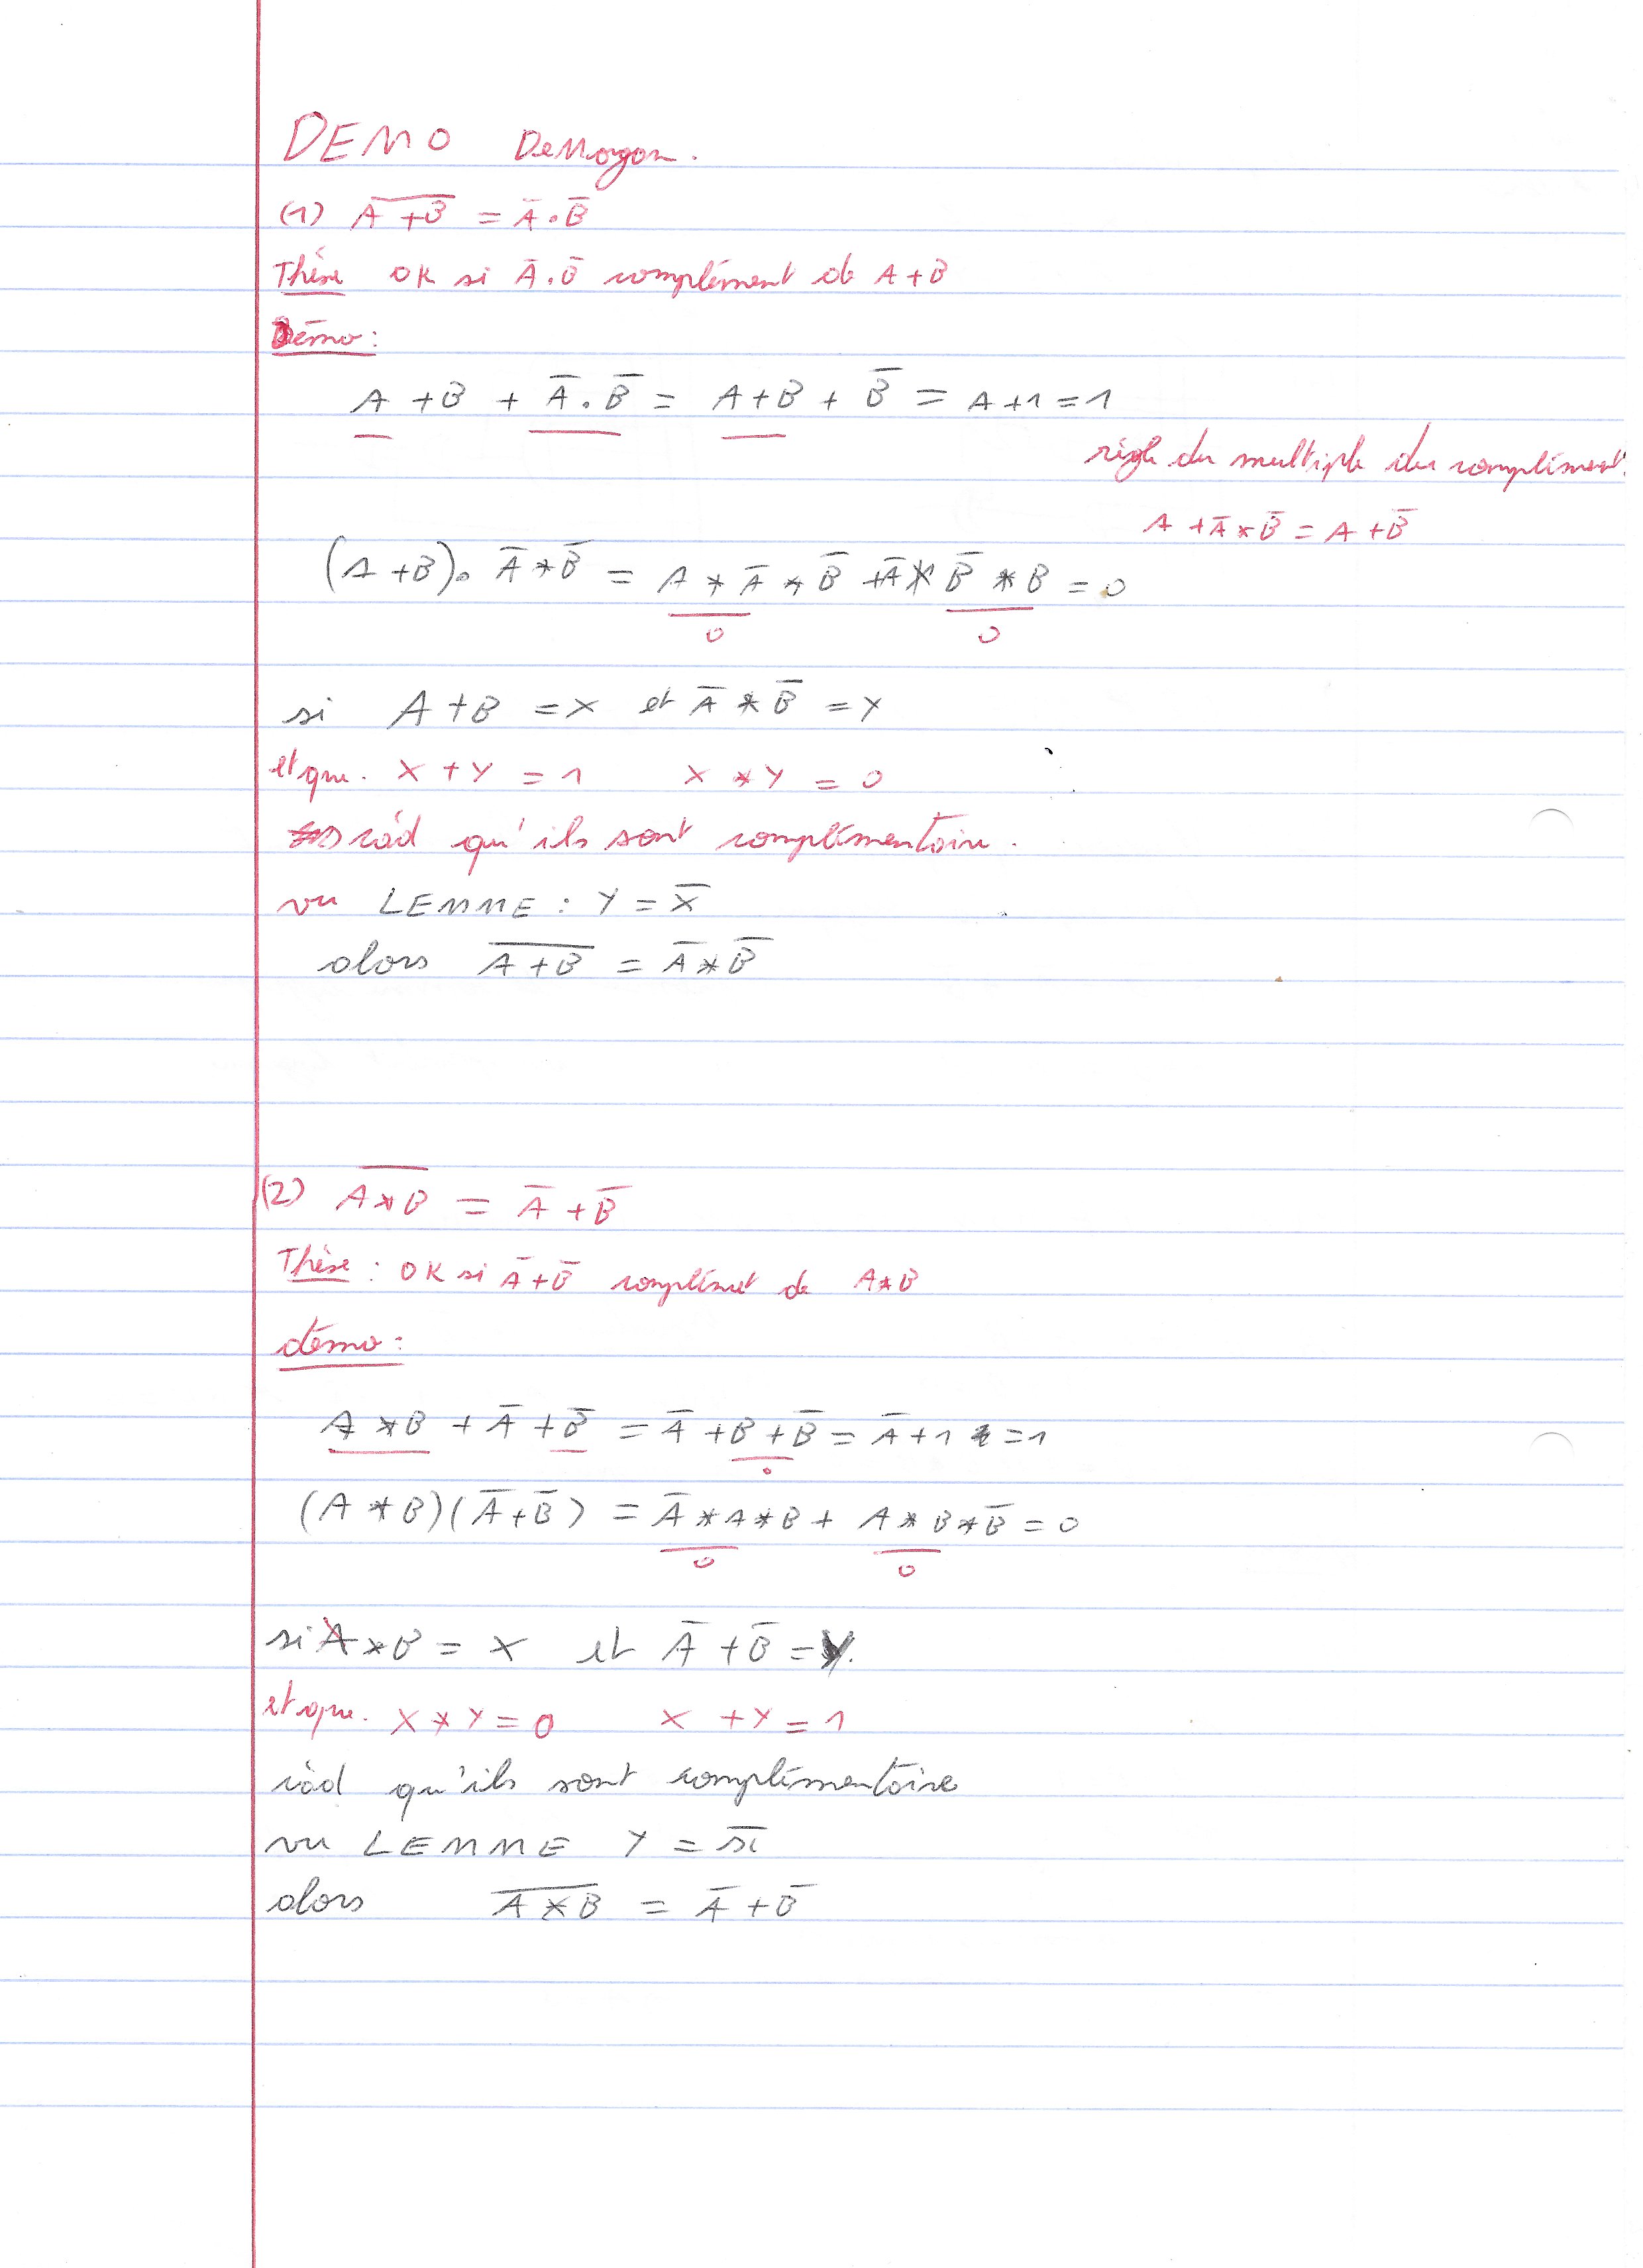 DEMO DeMorgan.
(1) A̅ ̅+̅ ̅B̅ = A̅.B̅
Thèse OK si A̅.B̅ complément de A+B
Démo:
A + B + A̅.B̅ = A+B + B̅ = A+1=1
règle du multiple du complément.
A + A̅*B̅ = A + B̅
(A+B). A̅*B̅ = A * A̅ * B̅ + A̅ * B̅ * B = 0
0 0
si A+B = X et A̅ * B̅ = Y
et que. X + Y = 1 X * Y = 0
càd qu'ils sont complémentaire.
vu LEMME : Y = X̅
alors A̅ ̅+̅ ̅B̅ = A̅*B̅
(2) A̅*̅B̅ = A̅ + B̅
Thèse : OK si A̅+B̅ complémet de A*B
démo:
A*B + A̅ + B̅ = A̅ + B + B̅ = A̅ + 1 = 1
0
(A*B)(A̅+B̅) = A̅*A*B + A*B*B̅ = 0
0 0
si A*B = X et A̅ + B̅ = Y.
et que. X * Y = 0 X + Y = 1
càd qu'ils sont complémentaires
vu LEMME Y = x̅
alors A̅ ̅*̅ ̅B̅ = A̅ + B̅